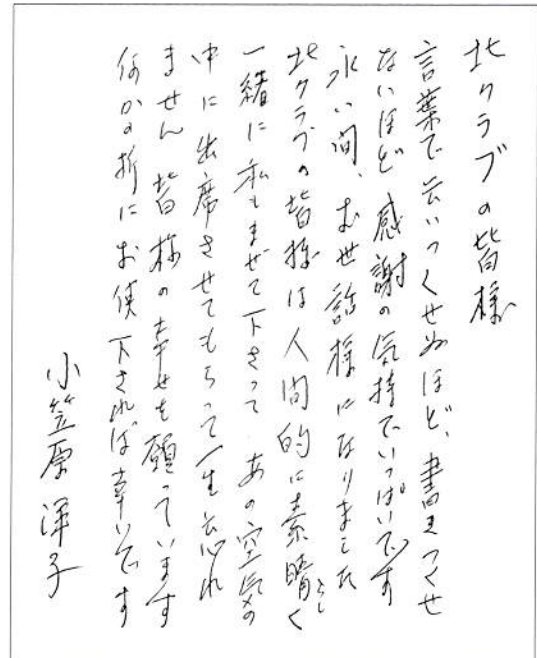 北クラブの皆様
言葉で云いつくせぬほど、書きつくせ
ないほど感謝の気持でいっぱいです
永い間、お世話様になりました
北クラブの皆様は人間的に素晴らしく
一緒に私もまぜて下さって あの空気の
中に出席させてもらって一生忘れ
ません 皆様の幸せを願っています
何かの折にお使下されば幸いです
小笠原洋子